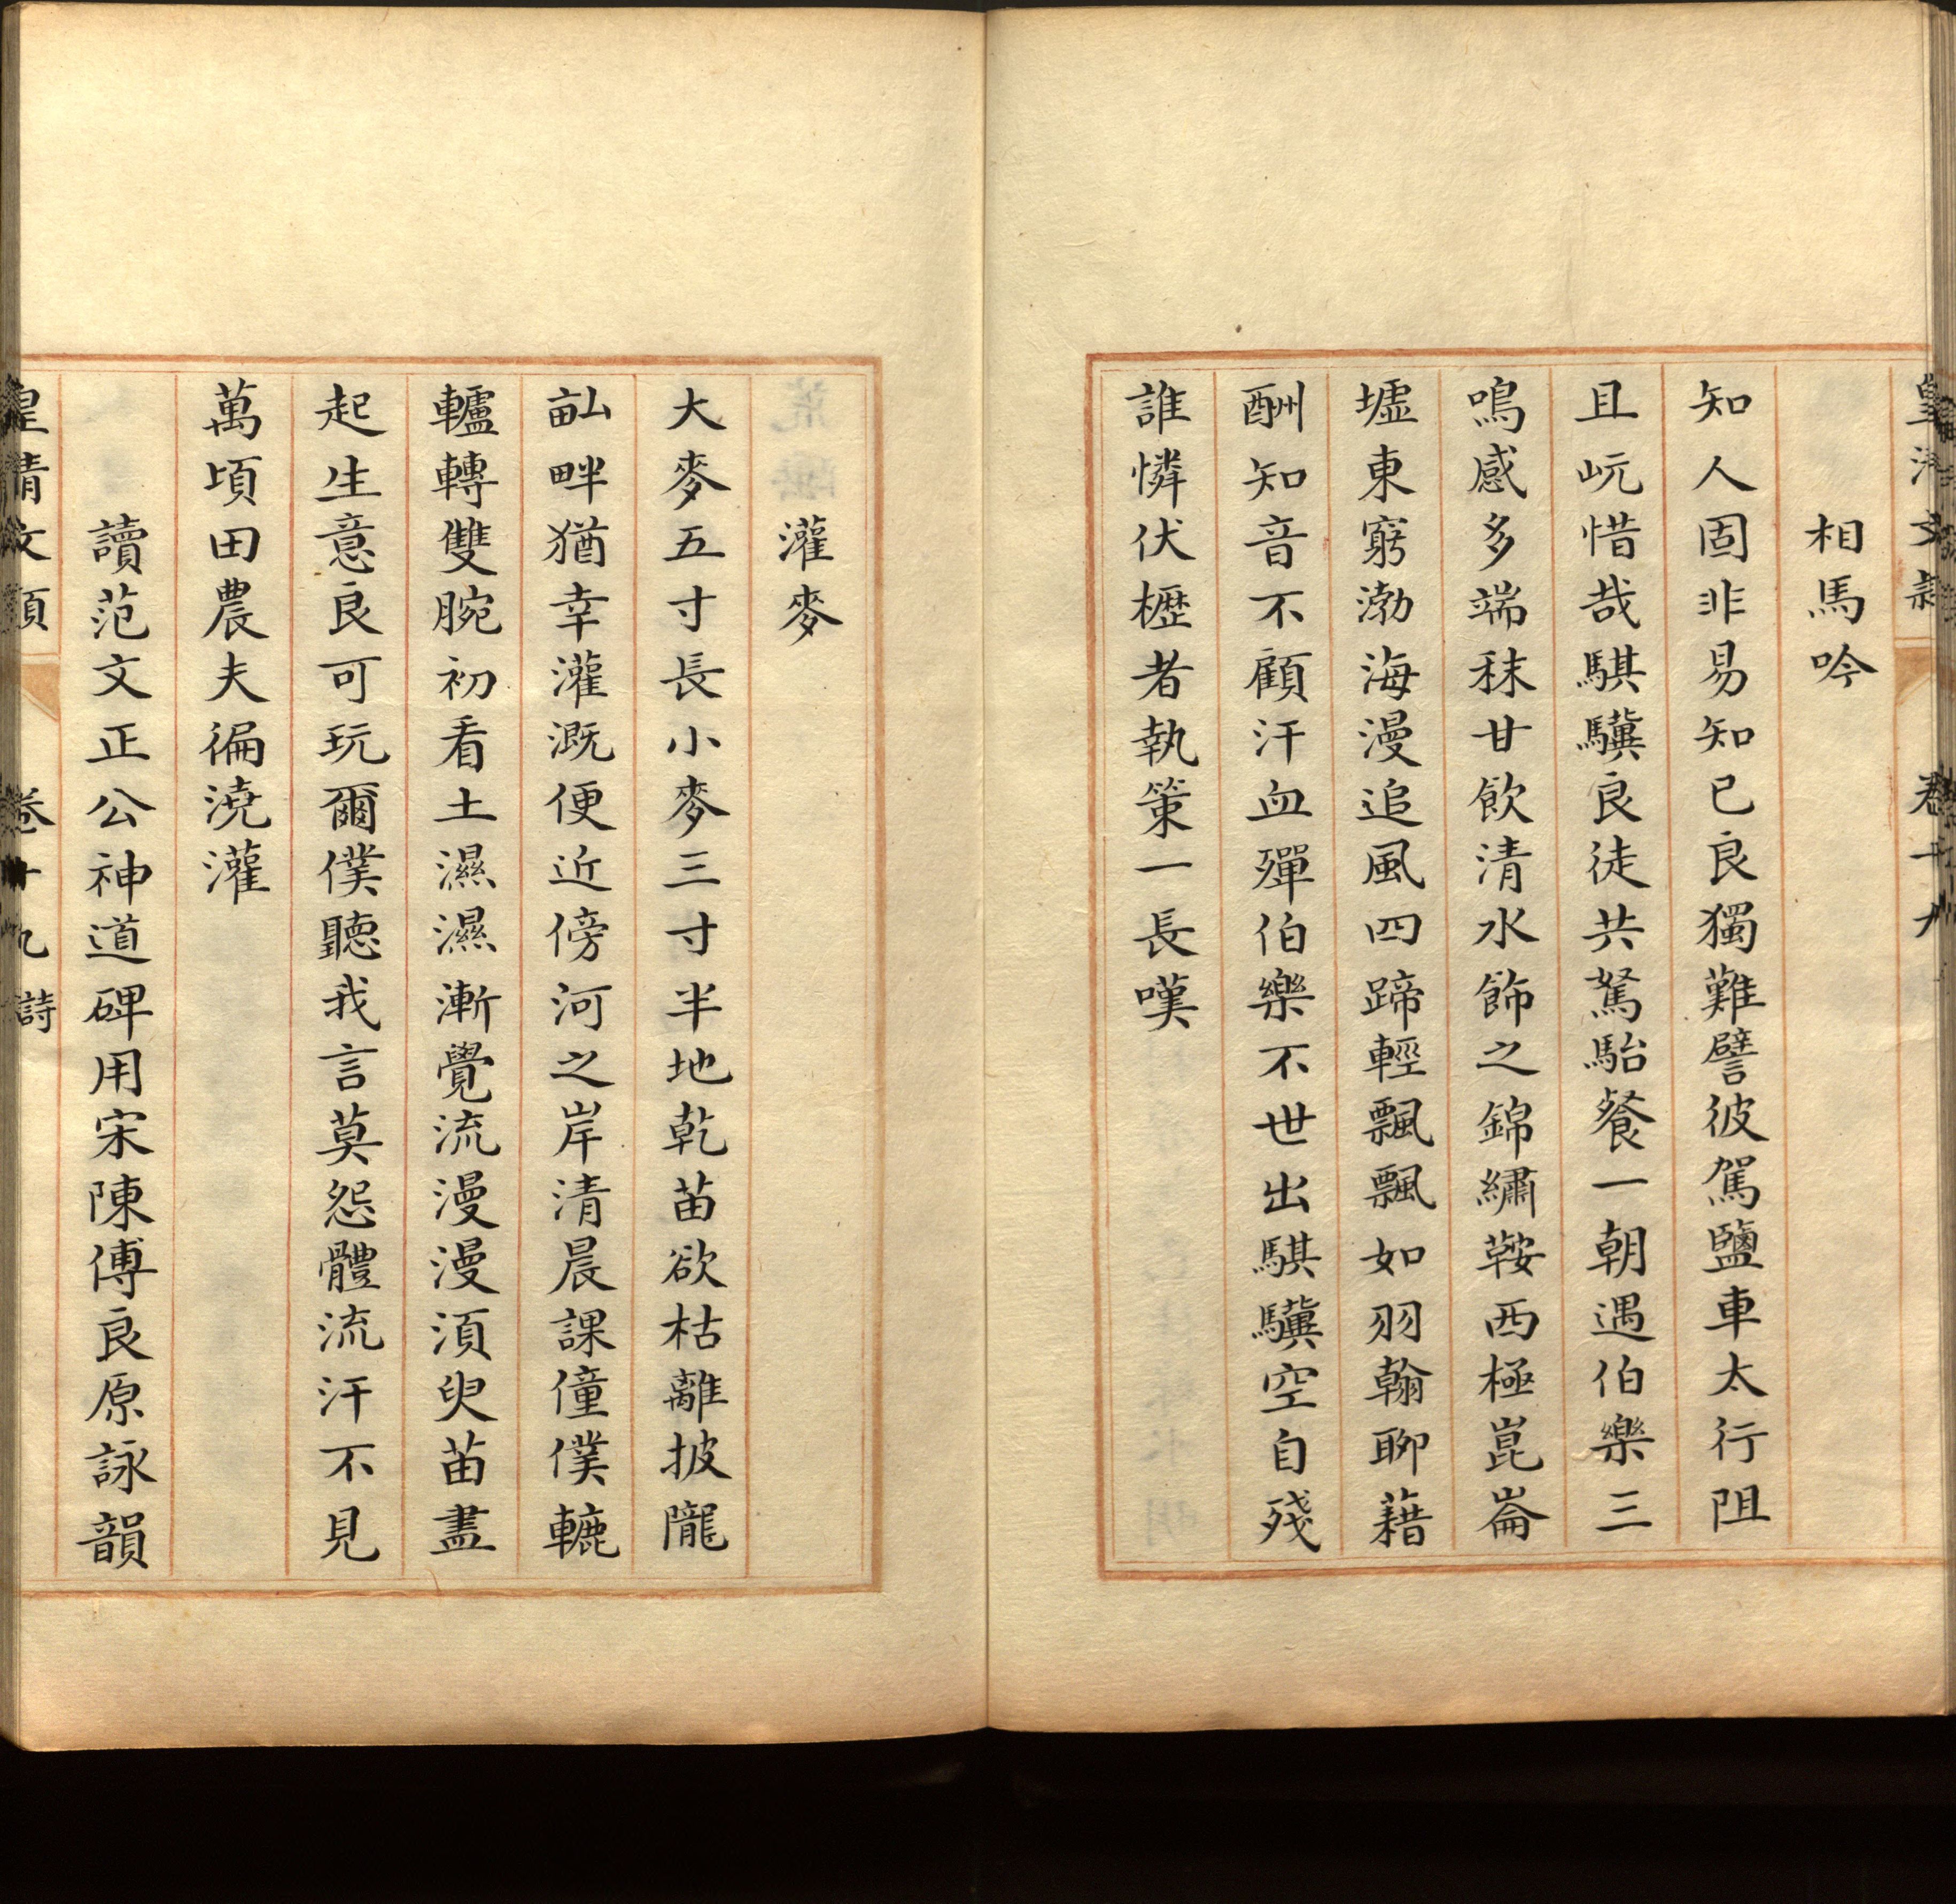 皇清文
卷十九
相馬吟
知人固非易知已良獨難譬彼駕鹽車太行阻
且岏惜哉騏驥良徒共駑駘餐一朝遇伯樂三
鳴感多端秣甘飲清水飾之錦繡鞍西極崑崙
墟東窮渤海漫追風四蹄輕飄飄如羽翰聊藉
酬知音不顧汗血殫伯樂不世出騏驥空自殘
誰憐伏櫪者執策一長嘆
灌麥
大麥五寸長小麥三寸半地乾苗欲枯離披隴
畝畔猶幸灌溉便近傍河之岸清晨課僮僕轆
轤轉雙腕初看土濕濕漸覺流漫漫湏臾苗盡
起生意良可玩爾僕聽我言莫怨體流汗不見
萬頃田農夫徧澆灌
讀范文正公神道碑用宋陳傅良原詠韻
皇清文
卷十九 詩